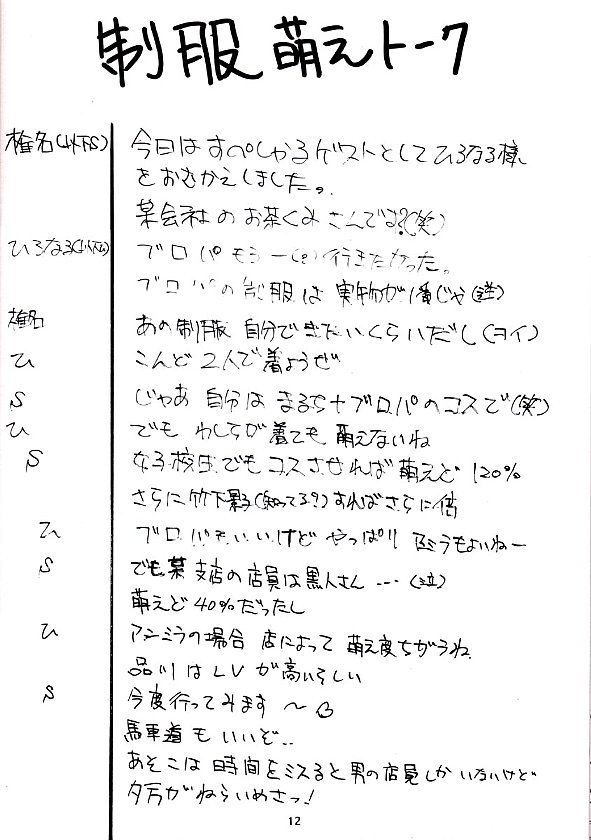 制服 萌えトーク
椎名(以下S) 今日は すぺしゃるゲストとして ひろなる様
をおむかえしました。
某会社の お茶くみ さんでは?(笑)
ひろなる(以下ひ) ブロパ もう一(?)行きたかった。
ブロパの制服は 実物が1番じゃ(謎)
椎名 あの制服 自分できたいくらいだし(ヲイ)
ひ こんど 2人で着ようぜ
S じゃあ 自分は まるち+ブロパのコスで(笑)
ひ でも わしらが着ても 萌えないね
S 女子校生でもコスさせれば萌えど 120%
さらに竹下
(知ってる?)すればさらに倍
ひ ブロパも いいけど やっぱり
もよいねー
S でも、某支店の店員は黒人さん…(泣)
萌えど 40%だったし
ひ アンミラの場合 店によって 萌え度ちがうね
品川はLVが高いらしい
S 今度行ってみます〜
馬車道も いいぞ..
あそこは 時間をミスると男の店員しか いないけど
夕方がねらいめさっ!
12